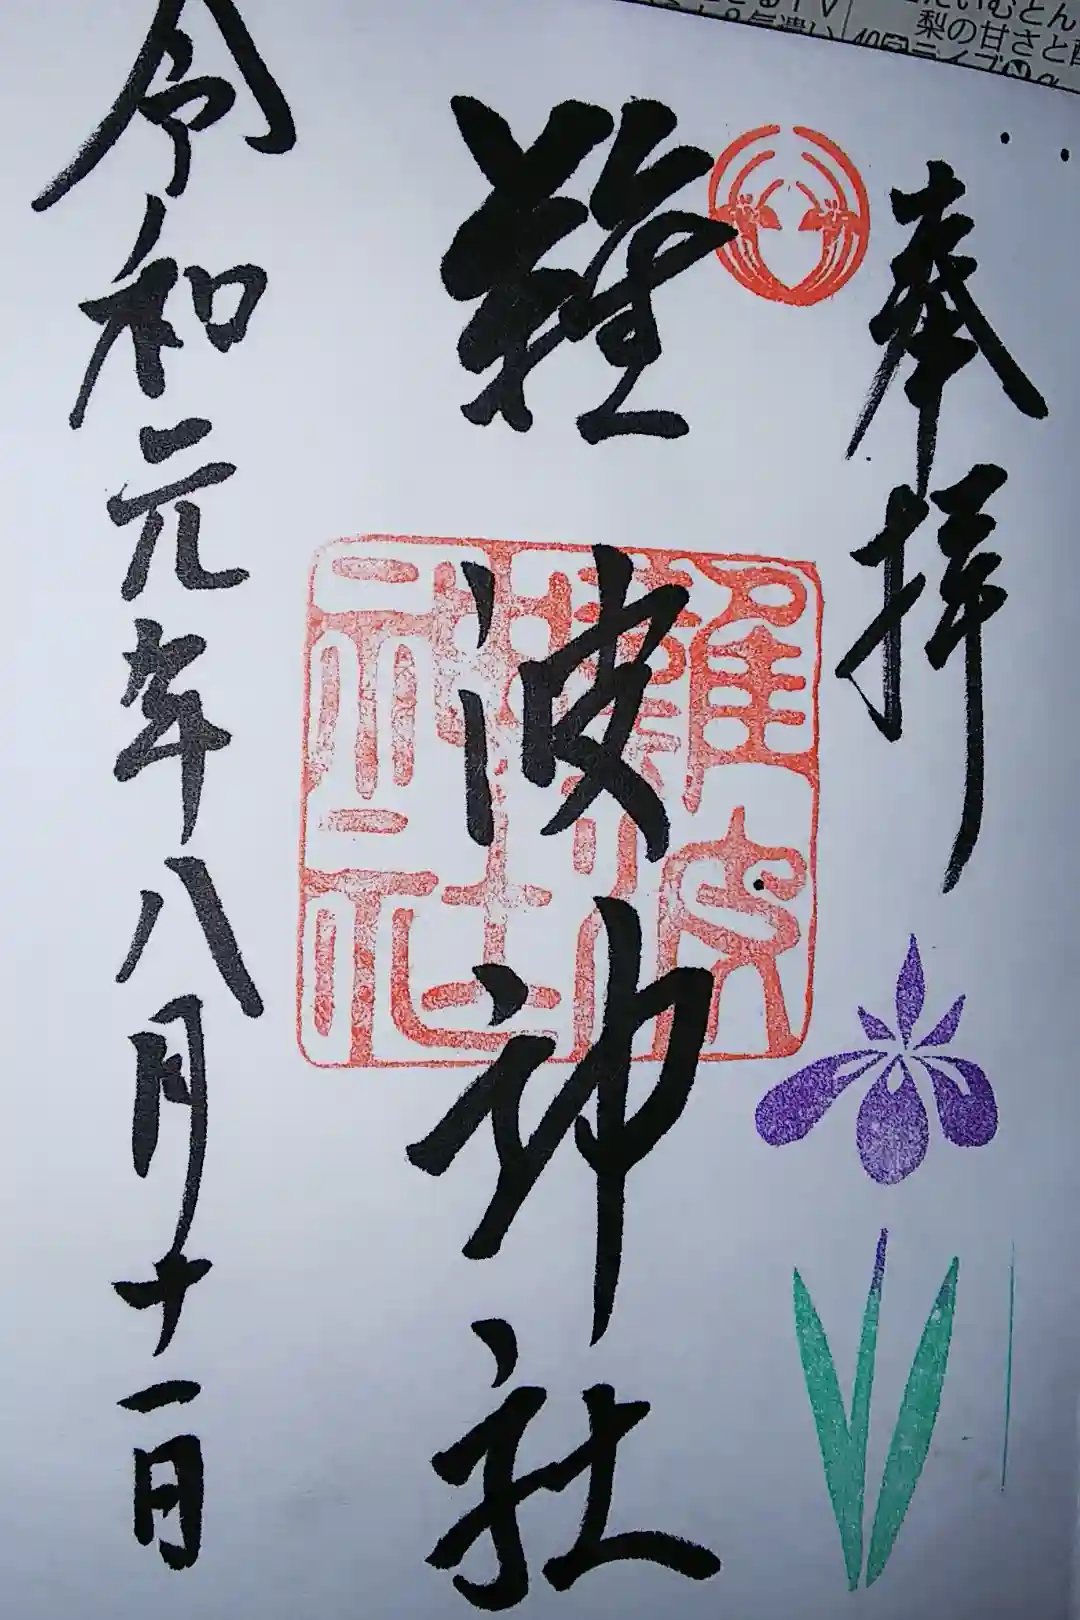 奉拝
難波神社
難波
神社
令和元年八月十一日
梨の甘さと